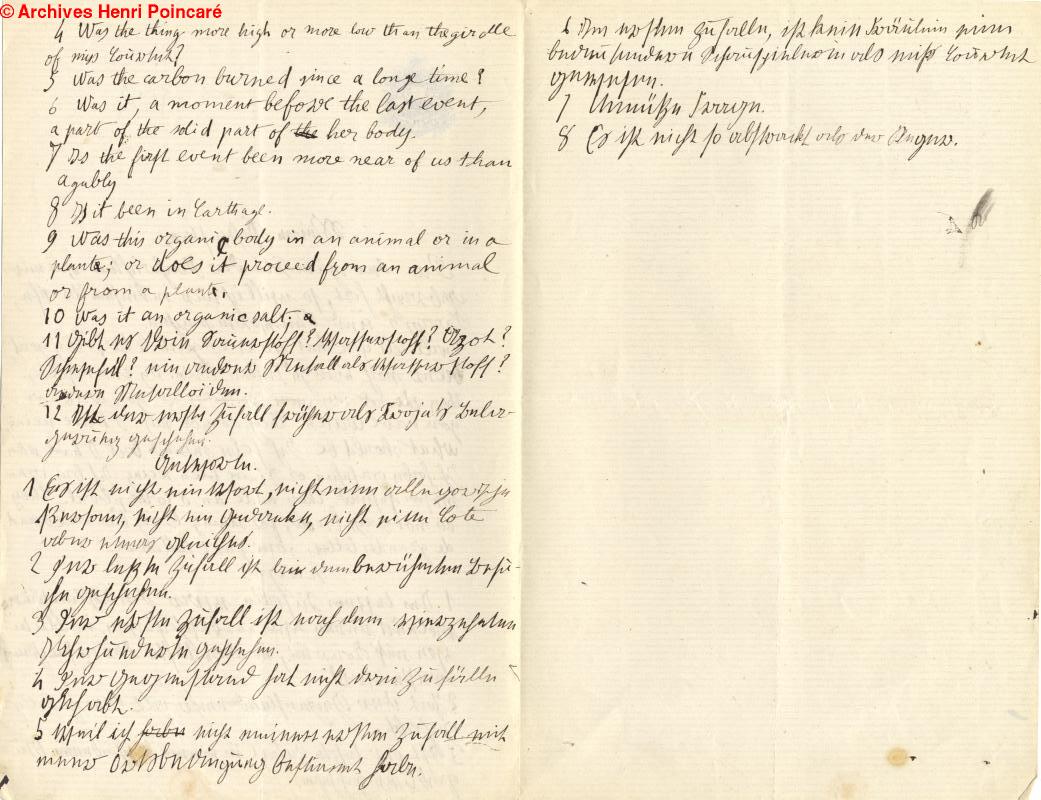 © Archives Henri Poincaré
4 Was the thing more high or more low than the girdle
of miss Couwht?
5 Was the carbon burned since a longe time?
6 Was it, a moment before the last event,
a part of the solid part of the her body.
7 Is the first event been more near of us than
agably
8 Is it been in Carthage.
9 Was this organic body in an animal or in a
plant; or does it proceed from an animal
or from a plant.
10 Was it an organic salt;
11 Gibt es kein Sauerstoff? Wasserstoff? Azot?
Schwefel? ein anderer Metall als Wasserstoff?
andere Metalloiden.
12 Ist der erste Zufall früher als Troja's Belage-
rung geschehen.
Antworten.
1 Es ist nicht ein Wort, nicht eine allegorische
Person, nicht ein Gedanken, nicht eine Cote
oder etwas gleiches.
2 Der letzte Zufall ist bei dem berühmten Besu-
che geschehen.
3 Der erste Zufall ist nach dem vierzehnten
Jahrhunderte geschehen.
4 Der Gegenstand hat nicht drei Zufälle
gehabt.
5 Weil ich habe nicht meinen ersten Zufall mit
einer Ortsbedingung bestimmt habe.
6 Im ersten Zufalle, ist kein Fräulein eine
bedeutendere Schauspielerin als miss Couwht
gewesen.
7 Unnütze Frage.
8 Es ist nicht so abstrackt als der Ungar.